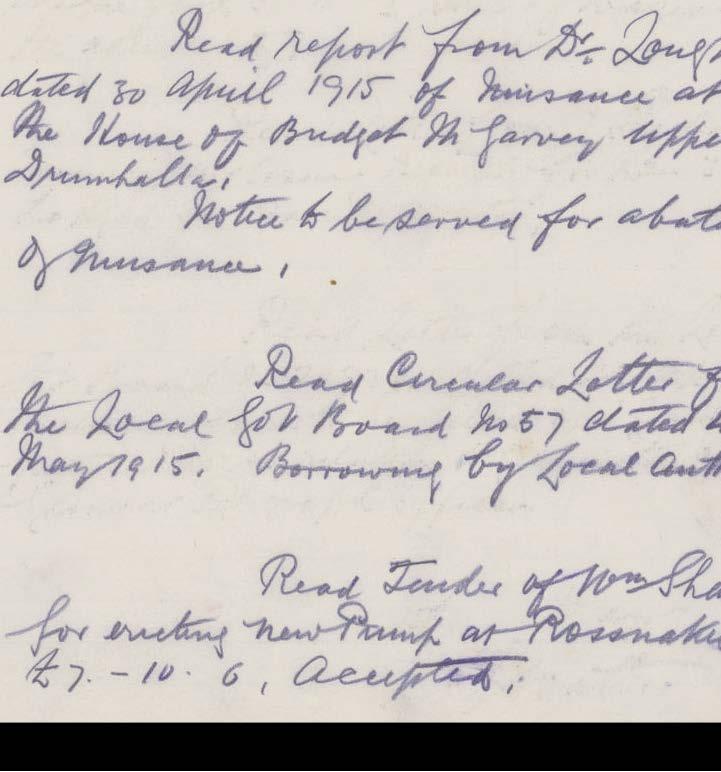 Read report from Dr. Lough
dated 30 April 1915 of Nuisance at
the House of Bridget McGarvey Uppe
Drumhalla.
Notice to be served for abate
of Nuisance.
Read Circular Letter f
the Local Gov Board No 57 dated
May 1915. Borrowing by Local Auth
Read Tender of Wm Sha
for erecting new Pump at Rossnake
£7. - 10. 6, Accepted.